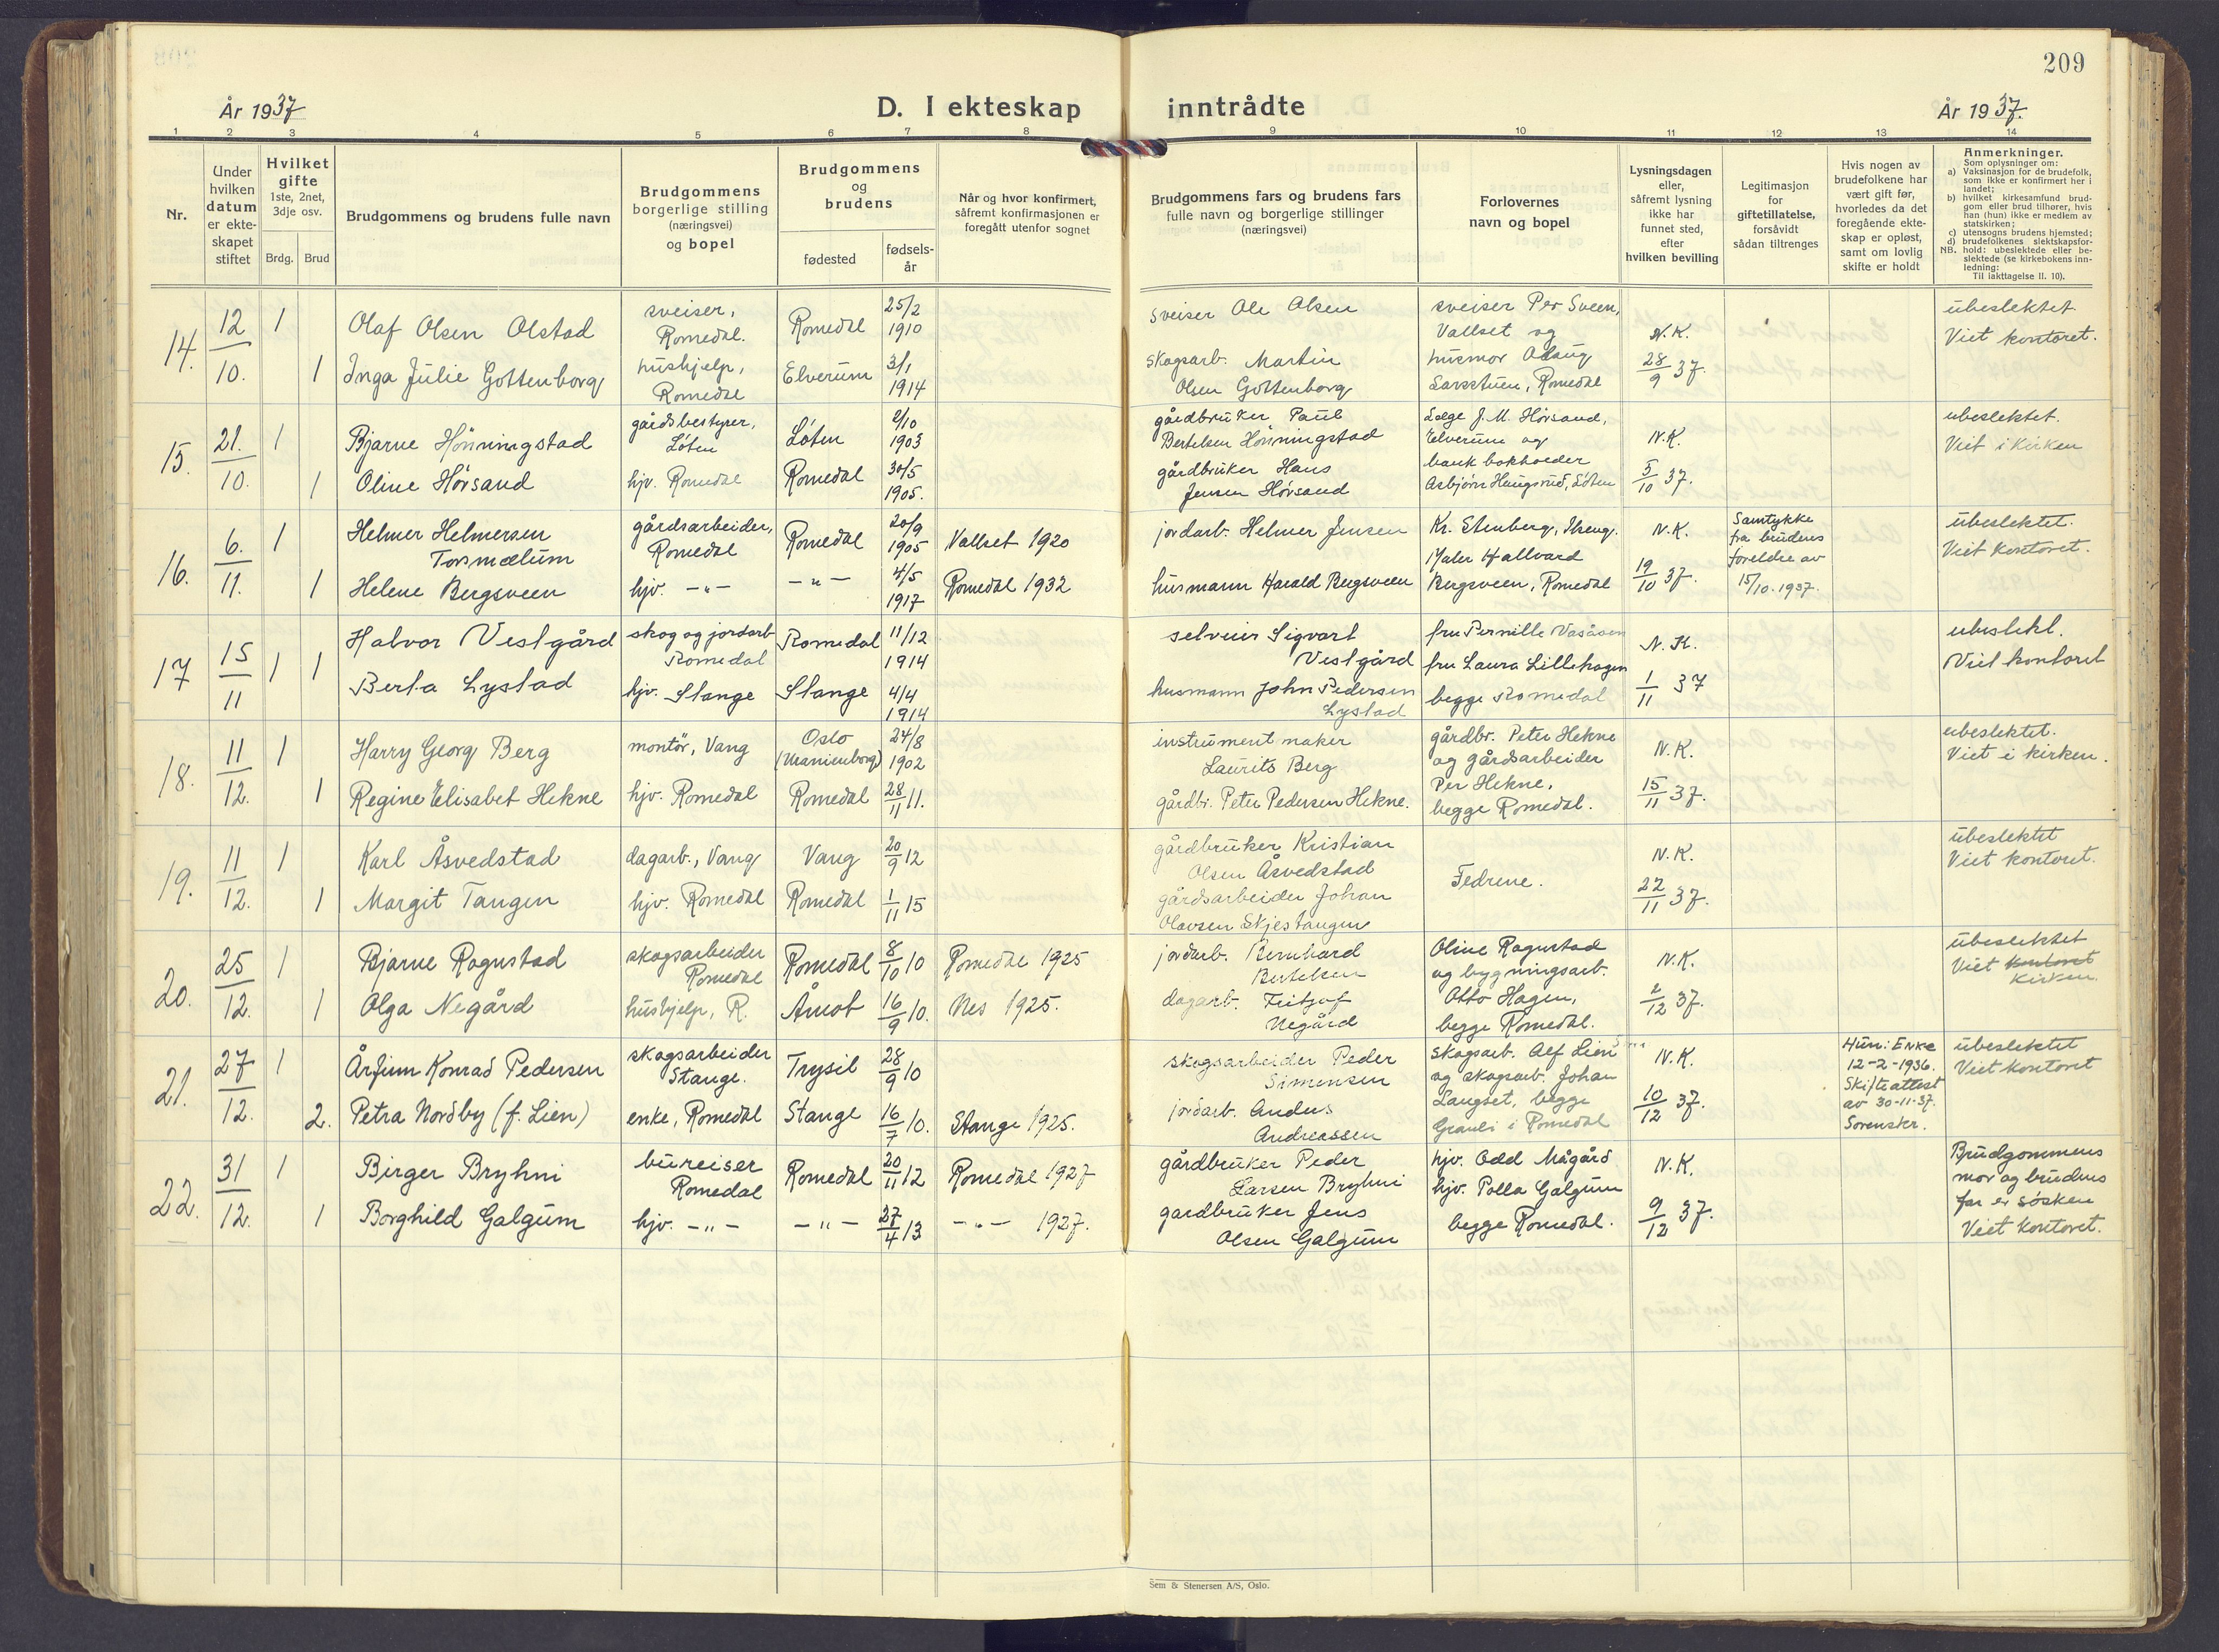 209
År 1937
D. I ekteskap inntrådte
År 1937.
1 2 3 4 5 6 7 8 9 10 11 12 13 14
Nr.
Under hvilken datum er ekte- skapet stiftet
Hvilket gifte 1ste, 2net, 3dje osv.
Brdg. Brud
Brudgommens og brudens fulle navn
Brudgommens borgerlige stilling (næringsvei) og bopel
Brudgommens og brudens
fødested
fødsels- år
Når og hvor konfirmert, såfremt konfirmasjonen er foregått utenfor sognet
Brudgommens fars og brudens fars fulle navn og borgerlige stillinger (næringsvei)
Forlovernes navn og bopel
Lysningsdagen eller, såfremt lysning ikke har funnet sted, efter hvilken bevilling
Legitimasjon for giftetillatelse, forsåvidt sådan tiltrenges
Hvis nogen av brudefolkene har vært gift før, hvorledes da det foregående ekte- skap er opløst, samt om lovlig skifte er holdt
Anmerkninger.
Som oplysninger om:
a) Vaksinasjon for de brudefolk, som ikke er konfirmert her i landet;
b) hvilket kirkesamfund brud- gom eller brud tilhører, hvis han (hun) ikke er medlem av statskirken;
c) utensogns brudens hjemsted;
d) brudefolkenes slektskapsfor- hold: ubeslektede eller be- slektede (se kirkebokens inn- ledning:
NB. Til iakttagelse II. 10).
14. 12/10. 1 Olaf Olsen Olstad sveiser, Romedal. Romedal 25/2 1910 sveiser Ole Olsen sveiser Per Sveen, Vallset og N.K. ubeslektet. Viet kontoret.
1 Inga Julie Gottenborg hushjelp, Romedal Elverum 3/1 1914 skogsarb. Martin Olsen Gottenborg husmor Aslaug Larsstuen, Romedal 28/9 37.
15. 21./10. 1 Bjarne Hönningstad gårdsbestyrer, Löten Löten 2/10 1903 gårdbruker Paul Bertelsen Hönningstad Læge J. M. Hörsand, Elverum og N.K. ubeslektet. Viet i kirken
1 Oline Hörsand hjv. Romedal Romedal 30/5 1905. gårdbruker Hans Jensen Hörsand bank bokholder Asbjörn Haugsrud, Löten 5/10 37.
16. 6./11. 1 Helmer Helmersen Torsmælum gårdsarbeider, Romedal Romedal 20/9 1905 Vallset 1920 jordarb. Helmer Jensen Kr. Stenberg, N.K. Samtykke fra brudens foreldre av 15/10.1937. ubeslektet. Viet kontoret.
1 Helene Bergsveen hjv. -"- -"- 4/5 1917 Romedal 1932 husmann Harald Bergsveen Maler Hallvard Bergsveen, Romedal 19/10 37.
17 15/11 1 1 Halvor Vestgård skog og jordarb Romedal Romedal 11/12 1914 selveier Sigvart Vestgård fru Pernille Vasåsen N.K. ubeslekt. Viet kontoret
Berta Lystad hjv. Stange Stange 4/4 1914 husmann John Pedersen Lystad fru Laura Lillehagen begge Romedal 1/11 37
18. 11/12. 1 Harry Georg Berg montör, Vang Oslo (Uranienborg) 24/8 1902 instrument maker Laurits Berg gårdbr. Peter Hekne og gårdsarbeider N.K. ubeslektet. Viet i kirken.
1 Regine Elisabet Hekne hjv. Romedal Romedal 28/11 11. gårdbr. Peter Pedersen Hekne. Per Hekne, begge Romedal. 15/11 37.
19. 11/12. 1 Karl Åsvedstad dagarb., Vang Vang 20/9 12 gårdbruker Kristian Olsen Åsvedstad Fedrene. N.K. ubeslektet Viet kontoret.
1 Margit Tangen hjv. Romedal Romedal 1/11 15 gårdsarbeider Johan Olavsen Skjestangen 22/11 37.
20. 25/12. 1 Bjarne Rognstad skogsarbeider Romedal Romedal 8/10 10 Romedal 1925 jordarb. Bernhard Bertelsen Oline Rognstad og bygningsarb. N.K. ubeslektet Viet kontoret kirken
1 Olga Negård hushjelp, R. Åmot 16/9 10. Nes 1925. dagarb. Fritjof Negård Otto Hagen, begge Romedal. 2/12 37.
21. 27/12. 1 Årfinn Konrad Pedersen skogsarbeider Stange. Trysil 28/9 10 skogsarbeider Peder Simensen skogsarb. Alf Lien og skogsarb. Johan N.K. Hun: Enke 12-2-1936. Skifteattest av 30-11-37. Sorenskr. ubeslektet Viet kontoret
2. Petra Nordby (f. Lien) enke, Romedal Stange 16/7 10. Stange 1925. jordarb. Anders Andreassen Langset, begge i Romedal 10/12 37.
22. 31/12. 1 Birger Bryhni bureiser Romedal Romedal 20/11 12 Romedal 1927 gårdbruker Peder Larsen Bryhni hjv. Odd Mågård N.K. Brudgommens mor og brudens far er søsken Viet kontoret.
1 Borghild Galgum hjv. -"- -"- 27/4 13 -"- 1927. gardbruker Jens Olsen Galgum hjv. Polla Galgum begge Romedal. 9/12 37.
Sem & Stenersen A/S, Oslo.